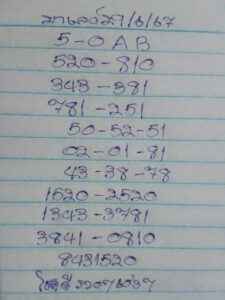 มาเลย์ 29/6/67
5-0 A B
520-810
343-381
781-251
50-52-51
02-01-81
43-38-78
1520-2520
1343-3781
3841-0810
8431520
โชคดี